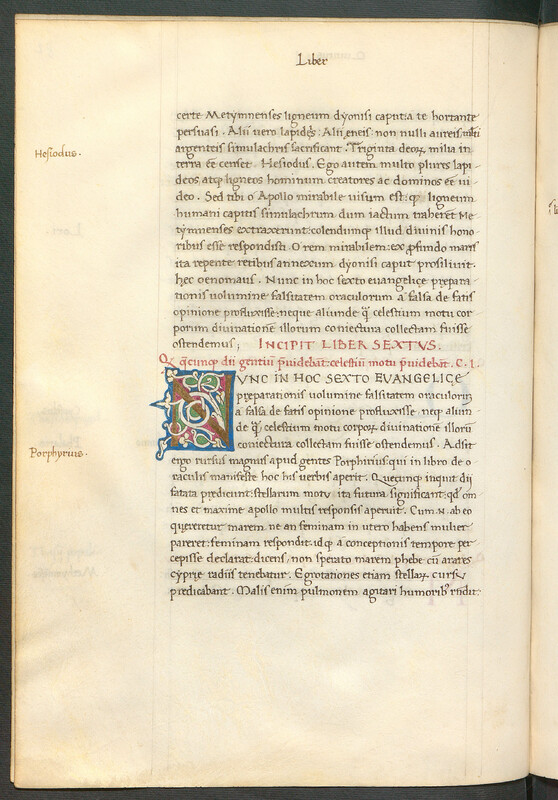 Liber
certe Metymnenses ligneum dyonisi caput a te hortante
persuasi. Alii uero lapideis: Alii eneis: non nulli aureis
Hesiodus.
argenteis simulachris sacrificant. Triginta deoꝝ milia in
terra ee censet Hesiodus. Ego autem multo plures lapi-
deos atqꝫ ligneos hominum creatores ac dominos ee ui-
deo. Sed tibi o Apollo mirabile uisum est: qꝫ ligneum
humani capitis simulachrum dum iactum traheret Me-
tymnenses extraxerunt: colendumque illud diuinis hono-
ribus esse respondisti. O rem mirabilem: ex ꝓfundo maris
ita repente retibus annexum dyonisi caput prosiliuit.
hęc oenomaus. Nunc in hoc sexto euangelicę prepara-
tionis uolumine falsitatem oraculorum a falsa de fatis
opinione profluxisse: neque aliunde q̄ celestium motu cor-
porum diuinationē illorum coniectura collectam fuisse
ostendemus; INCIPIT LIBER SEXTUS.
Q̄ q̄cunqꝫ dii gentiū p̄uidebāt: celestiū motu p̄uidebāt. C. I.
NUNC IN HOC SEXTO EUANGELICĘ
preparationis uolumine falsitatem oraculorum
a falsa de fatis opinione profluxisse: neqꝫ aliun-
de q̄ celestium motu corpoꝝ diuinationē illorū
coniectura collectam fuisse ostendemus. Adsit
Porphyrius.
ergo rursus magnus apud gentes Porphirius: qui in libro de o-
raculis manifeste hoc his uerbis aperit. Quecumqꝫ inquit dii
fatata predicunt: stellarum motu ita futura significant: qd̄ om
nes et maxime apollo multis responsis aperuit. Cum .N. ab eo
quereretur marem ne an feminam in utero habens mulier
pareret: feminam respondit: idqꝫ a conceptionis tempore per-
cepisse declarat: dicens, non sperato marem phebe cū arares
cyprie radiis tenebatur. Egrotationes etiam stellaꝝ cursu
predicabant. Malis enim pulmonem agitari humoribꝰ rn̄dit: